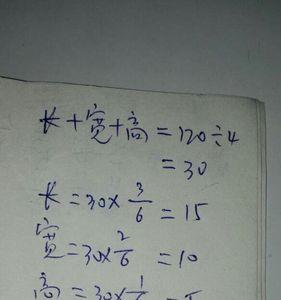 长+宽+高=120÷4
=30
长=30×3/6=15
宽=30×2/6=10
高=30×1